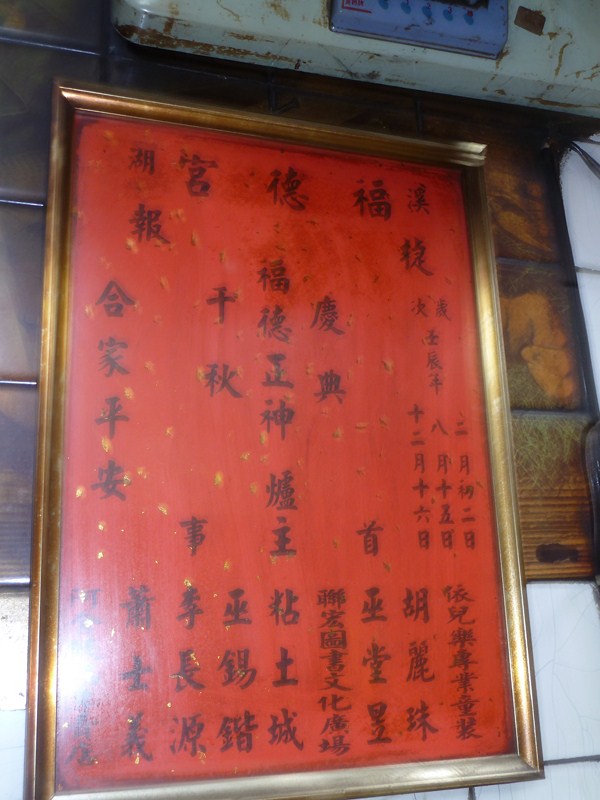 溪湖福德宮
捷報
歲次壬辰年
二月初二日
八月十五日
十二月十六日
慶典
福德正神
千秋
合家平安
爐主
首事
依兒樂專業童裝
胡麗珠
巫堂昱
聯宏圖書文化廣場
粘土城
巫錫鍇
李長源
蕭士義